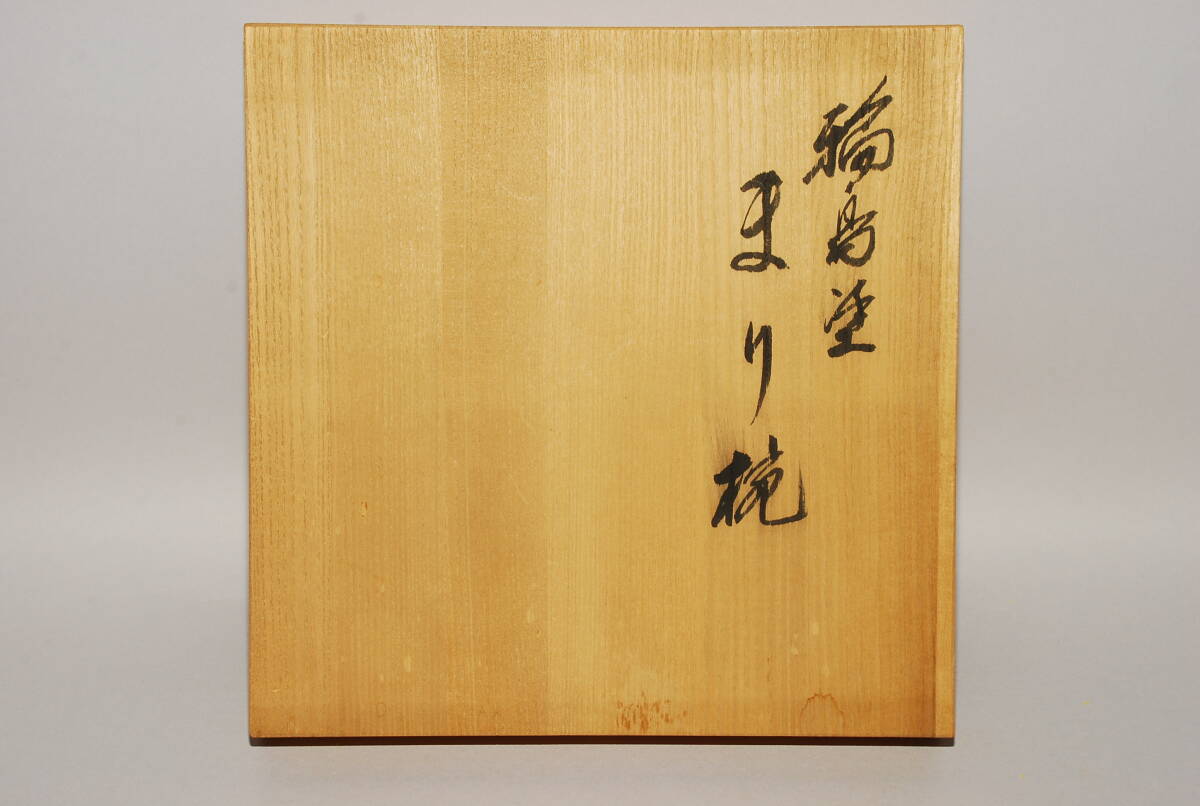 輪島塗
まり椀